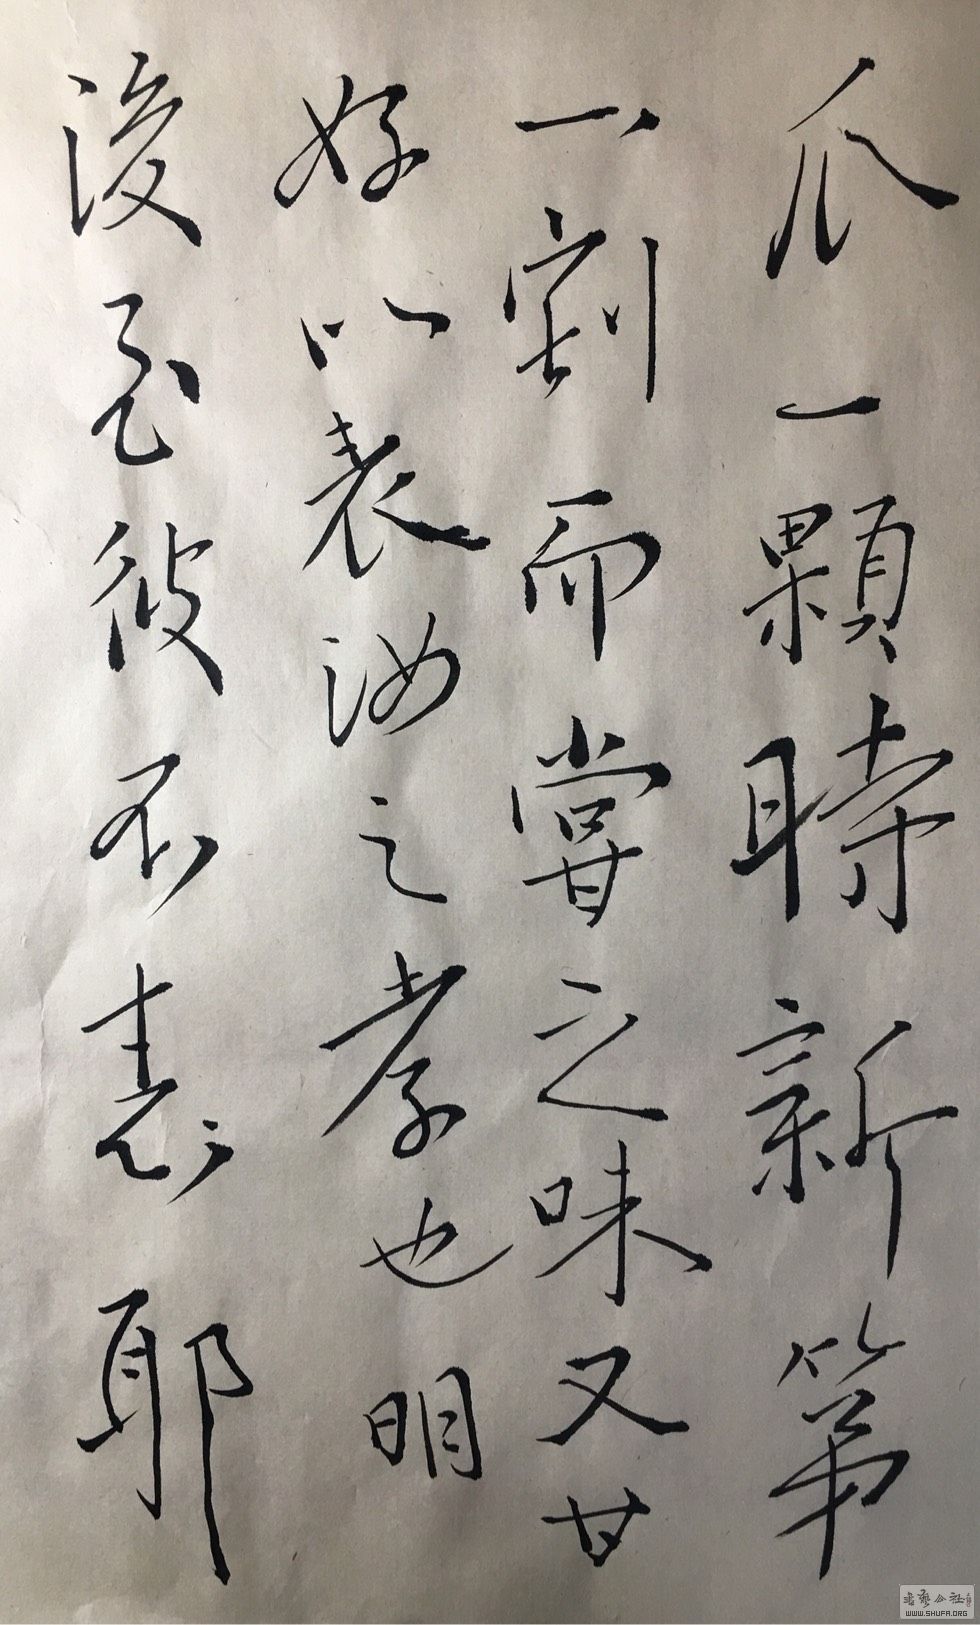 瓜一顆時新第
一割而嘗之味又甘
好以表汝之孝也明
後至彼不恙耶
書藝公社
WWW.SHUFA.ORG